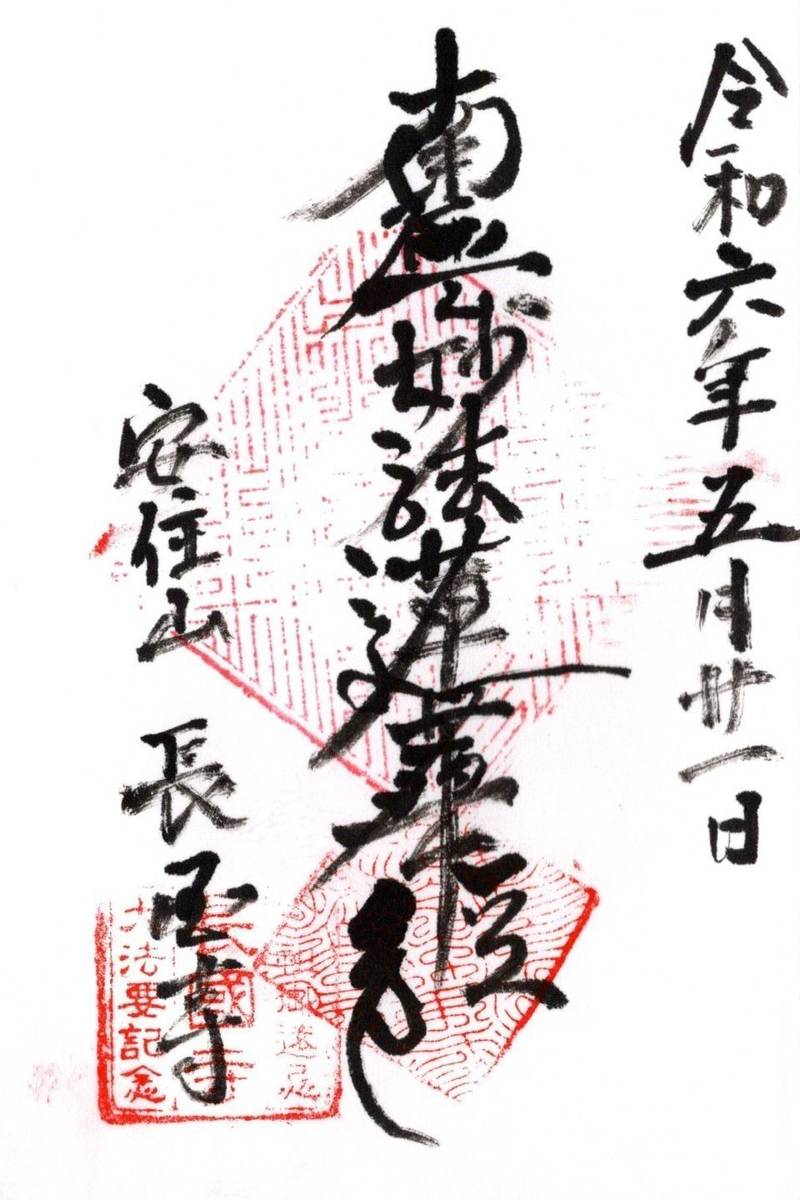 令和六年五月廿一日
南無妙法蓮華経
安住山 長国寺
長國寺
法要記念